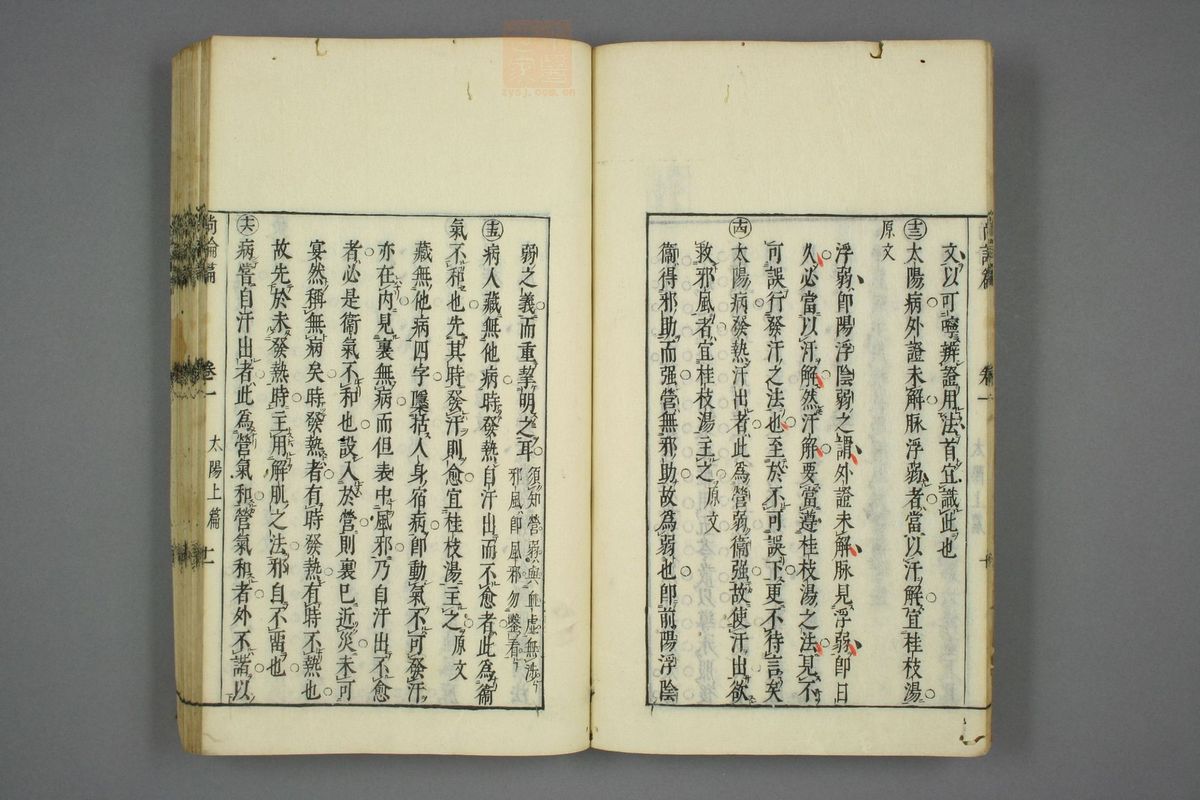 文以可嚀辨證用法首宜識此也
㊂太陽病外證未解脉浮弱者當以汗解宜桂枝湯
原文
浮弱卽陽浮陰弱之謂外證未解脉見浮弱卽日
久必當以汗解然汗解要當遵桂枝湯之法見不
可誤行發汗之法也至於不可誤下更不待言矣
太陽病發熱汗出者此為營弱衞強故使汗出欲
救邪風者宜桂枝湯主之 原文
衞得邪助而强營無邪助故為弱也卽前陽浮陰
弱之義而重挈明之耳 須知營弱與血虛無涉
邪風卽風邪勿鑿看
病人藏無他病時發熱自汗出而不愈者此為衞
氣不和也先其時發汗則愈宜桂枝湯主之 原文
藏無他病四字隱括人身宿病卽動氣不可發汗
亦在内見裏無病而但表中風邪乃自汗出不愈
者必是衞氣不和也設入於營則裏已近災未可
宴然稱無病矣時發熱者有時發熱有時不熱也
故先於未發熱時主用解肌之法邪自不畱也
病嘗自汗出者此為營氣和營氣和者外不諧以
尚論篇 卷一 太陽上篇 十一
zysj.com.cn